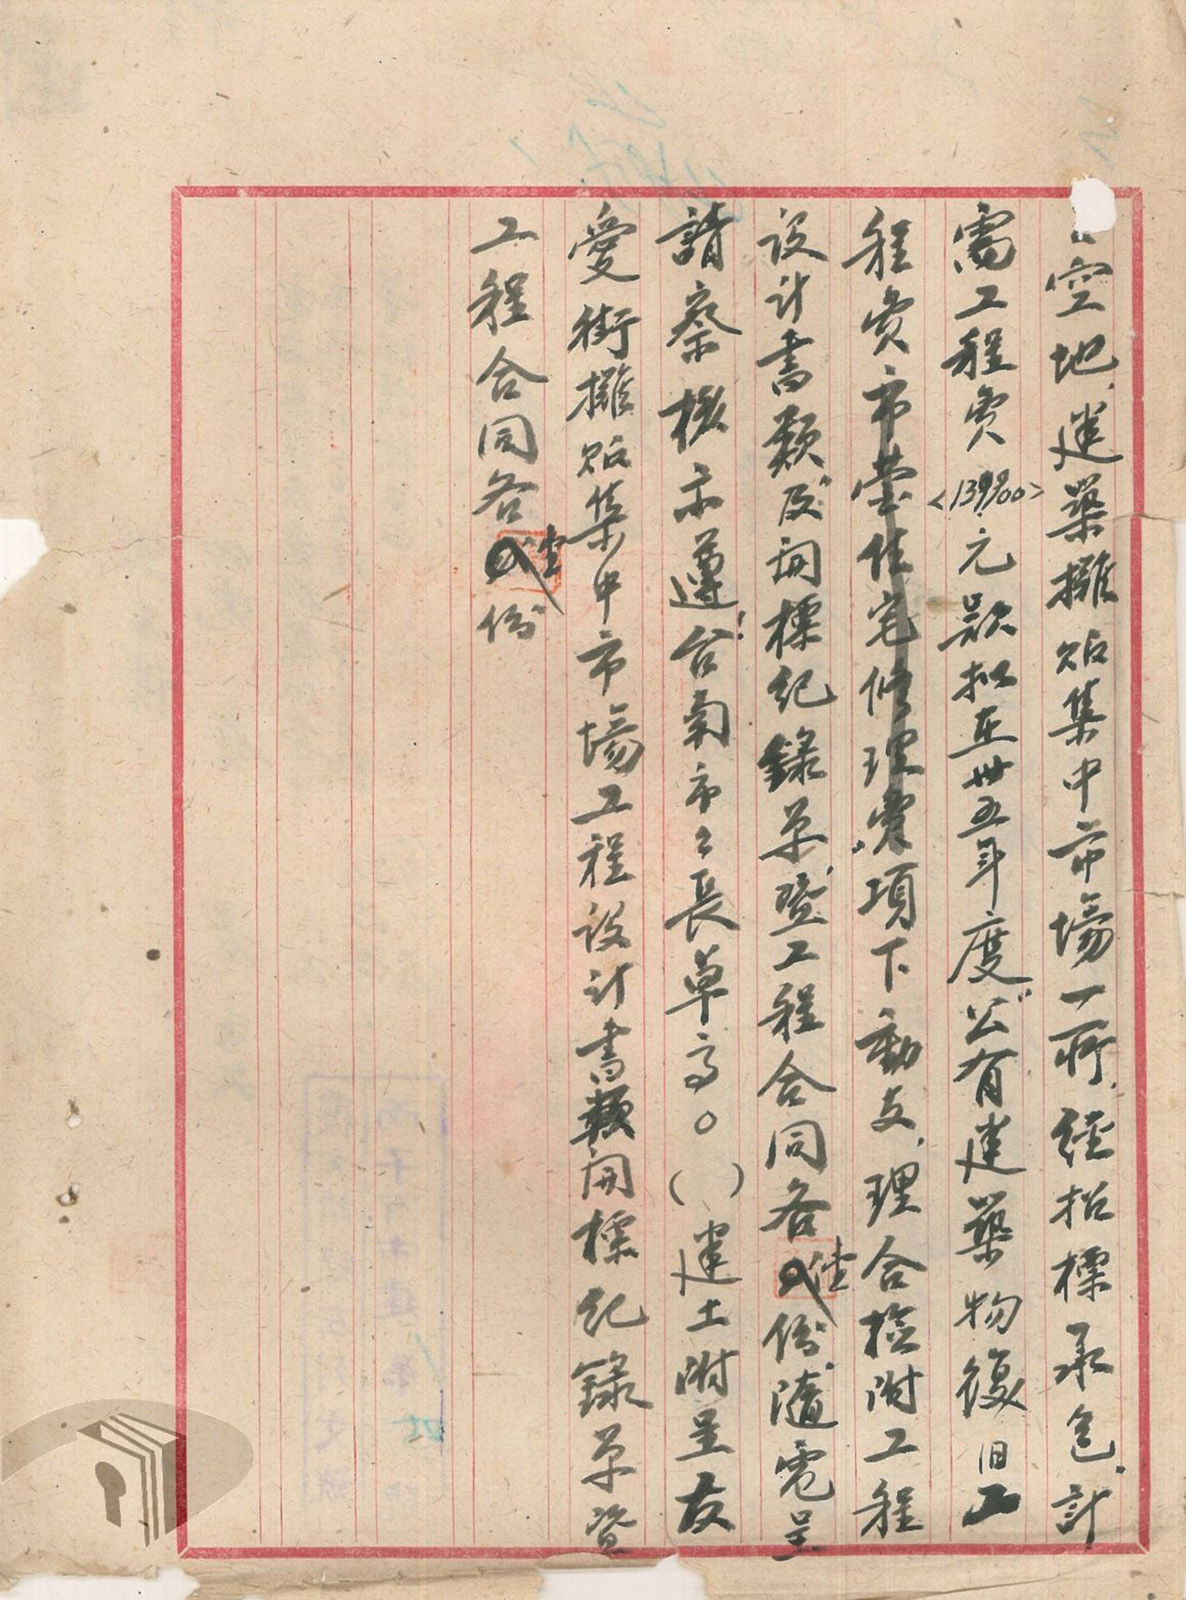 空地，建築攤販集中市場一所，經招標承包，計
需工程費<139900>元，款擬在卅五年度“公有建築物復旧工
程費市營住宅修理費”項下動支，理合檢附工程
設計書類及開標紀錄單，暨工程合同各壹份，隨電呈
請察核示遵！台南市々長卓高。（）建土附呈友
愛街攤販集中市場工程設計書類開標紀錄單暨
工程合同各壹份